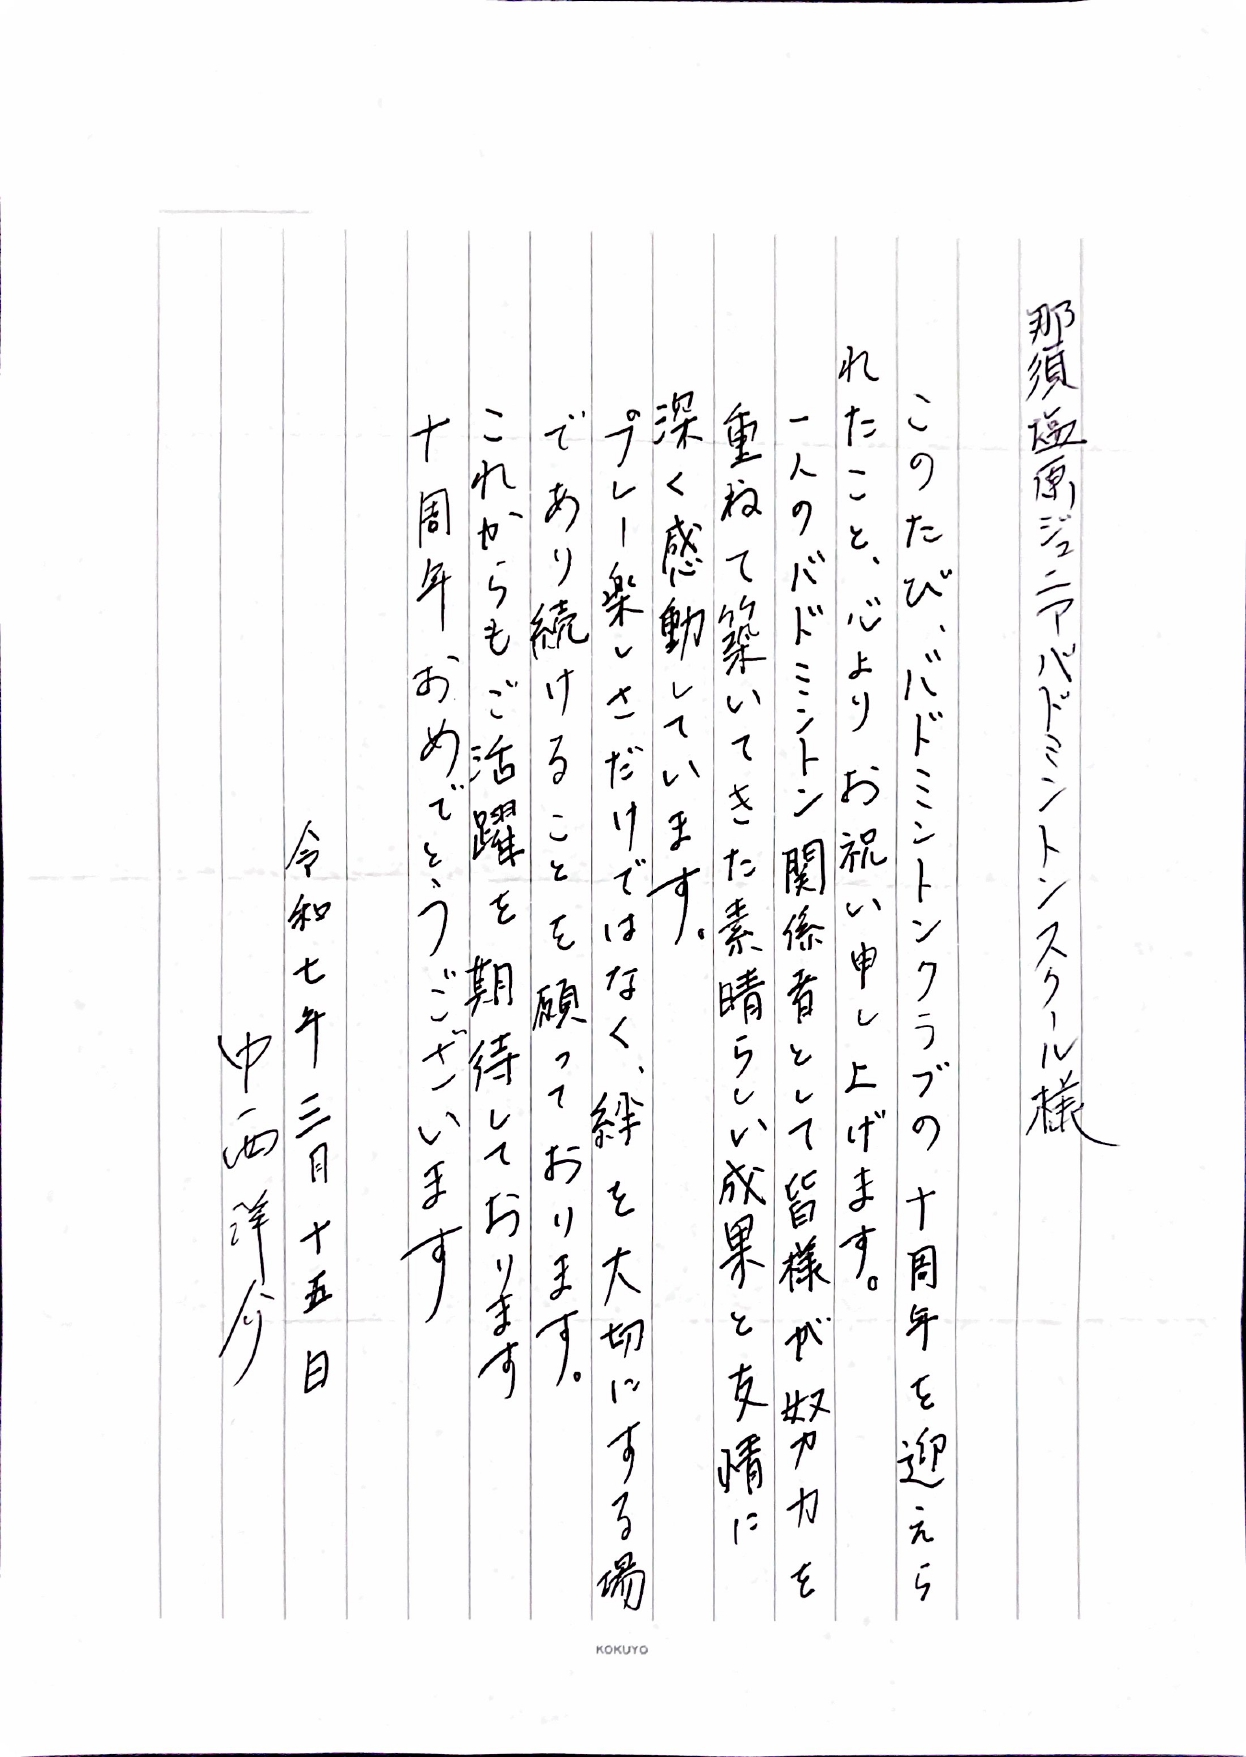 那須塩原ジュニアバドミントンスクール様
このたび、バドミントンクラブの十周年を迎えら
れたこと、心よりお祝い申し上げます。
一人のバドミントン関係者として皆様が努力を
重ねて築いてきた素晴らしい成果と友情に
深く感動しています。
プレー楽しさだけではなく、絆を大切にする場
であり続けることを願っております。
これからもご活躍を期待しております
十周年おめでとうございます
令和七年三月十五日
中西洋介
KOKUYO